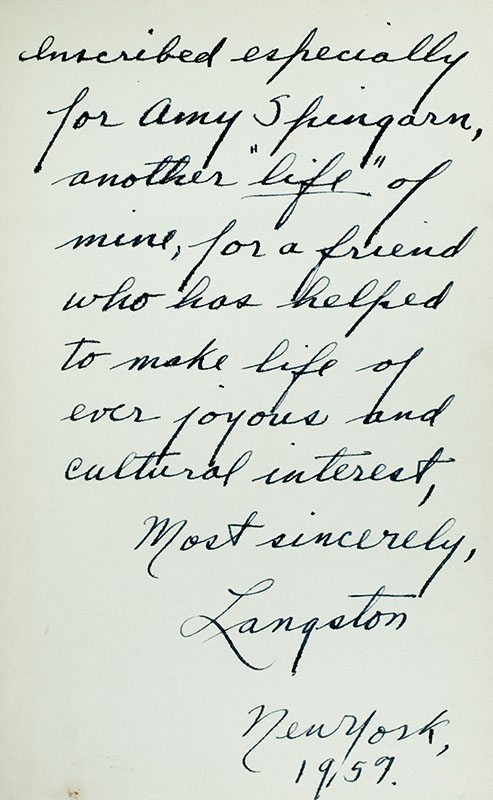 Inscribed especially
for Amy Spingarn,
another "life" of
mine, for a friend
who has helped
to make life of
ever joyous and
cultural interest,
Most sincerely,
Langston
New York,
1957.